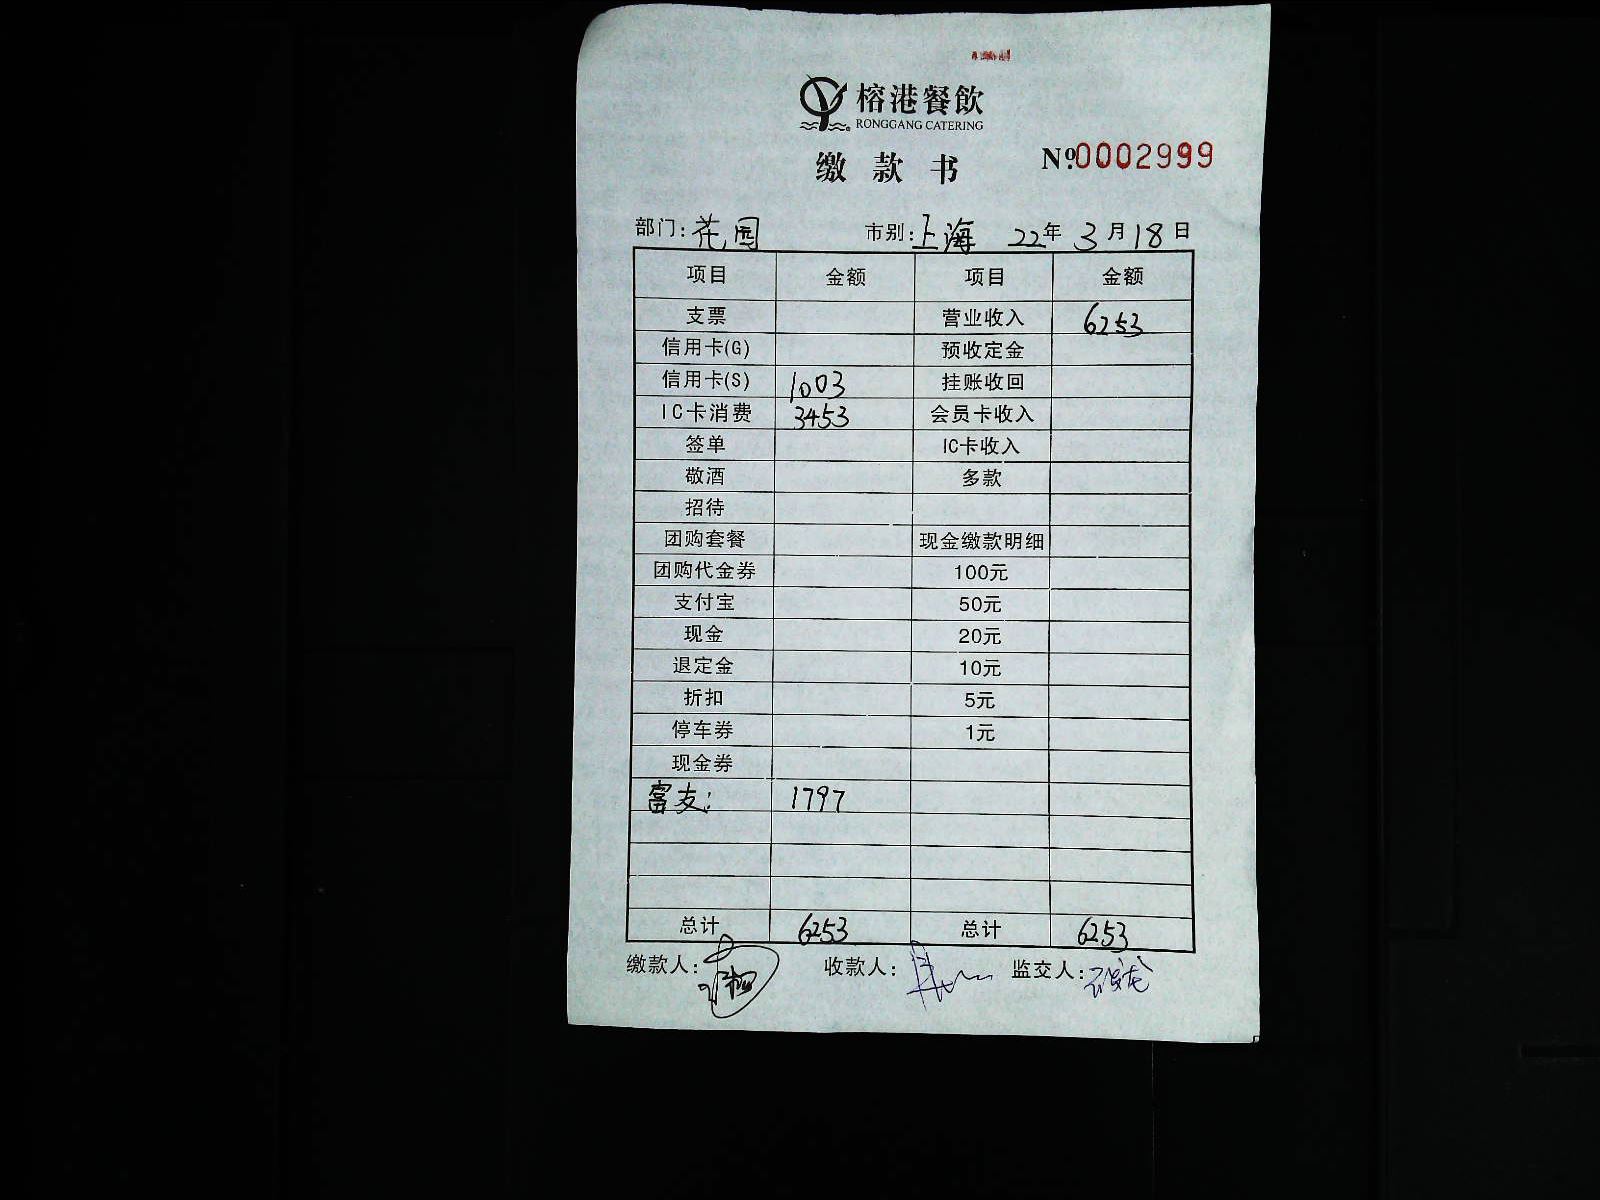 榕港餐飲
RONGGANG CATERING
缴款书
№0002999
部门:花园 市别:上海 22年3月18日
项目 金额 项目 金额
支票 营业收入 6253
信用卡(G) 预收定金
信用卡(S) 1003 挂账收回
IC卡消费 3453 会员卡收入
签单 IC卡收入
敬酒 多款
招待
团购套餐 现金缴款明细
团购代金券 100元
支付宝 50元
现金 20元
退定金 10元
折扣 5元
停车券 1元
现金券
富友: 1797
总计 6253 总计 6253
缴款人: 收款人: 监交人: